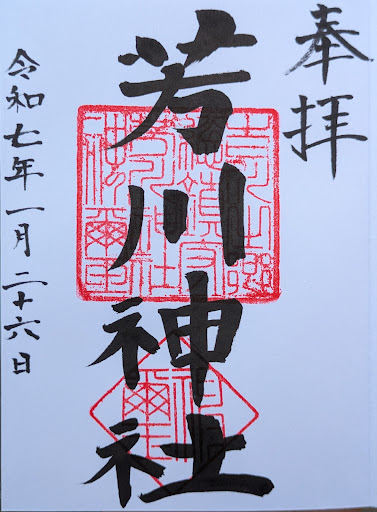 奉拝
芳川神社
令和七年一月二十六日